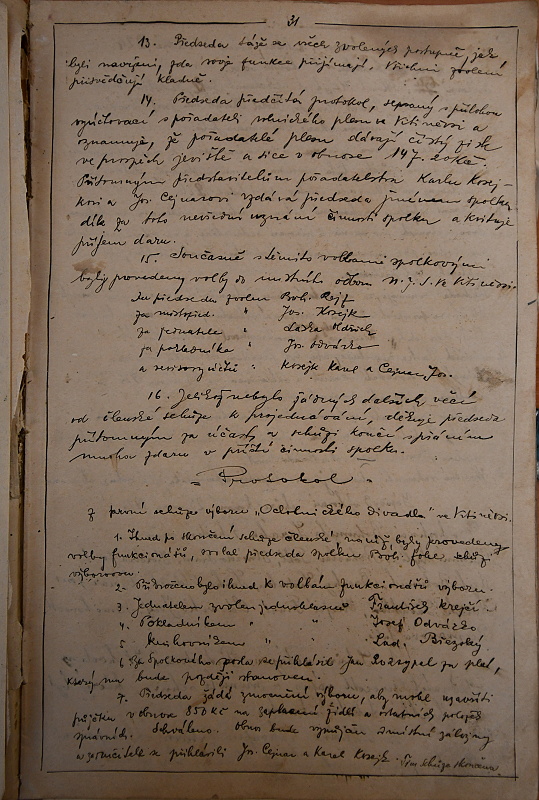 31
13. Předseda táže se všech zvolených postupně, jak
byli navrženi, zda svoje funkce přijímají. Všichni zvolení
přisvědčují kladně.
14. Předseda předčítá protokol, sepsaný s přílohou
vyúčtovací s pořadateli rolnického plesu ve Vitiněvsi a
oznamuje, že pořadatelé plesu dávají čistý zisk
ve prospěch jeviště a sice v obnose 147.20 Kč.
Přítomným představitelům pořadatelstva Karlu Kosej-
kovi a Jos. Cejnarovi vzdává předseda jménem spolku
dík za toto nevšední uznání činnosti spolku a kvituje
příjem daru.
15. Současně s těmito volbami spolkovými
byly provedeny volby do místního odboru N. J. S. ve Vitiněvsi.
Za předsedu zvolen Boh. Rejf
za místopřed. " Jos. Kosejk
za jednatele "
za pokladníka " Jos. Odvázko
a revisory účtů " Kosejk Karel a Cejnar Jos.
16. Jelikož nebylo žádných dalších věcí
od členské schůze k projednávání, děkuje předseda
přítomným za účast a schůzi končí s přáním
mnoho zdaru v příští činnosti spolku.
- Protokol -
z první schůze výboru „Ochotnického divadla" ve Vitiněvsi.
1. Ihned po skončení schůze členské na níž byly provedeny
volby funkcionářů, svolal předseda spolku Boh. schůzi
výborovou.
2. Přikročeno bylo ihned k volbám funkcionářů výboru.
3. Jednatelem zvolen jednohlasně František Krejčí
4. Pokladníkem " " Josef Odvázko
5. Knihovníkem " " Lad. Březský
6. Za spolkového posla se přihlásil Jan Rozsypal za plat,
který mu bude později stanoven.
7. Předseda žádá zmocnění výboru, aby mohl uzavříti
půjčku v obnose 850 Kč na zaplacení židlí a ostatních potřeb
správních. Schváleno. Obnos bude vypůjčen z místní záložny
a za ručitele se přihlásili Jos. Cejnar a Karel Kosejk. Tím schůze skončena.